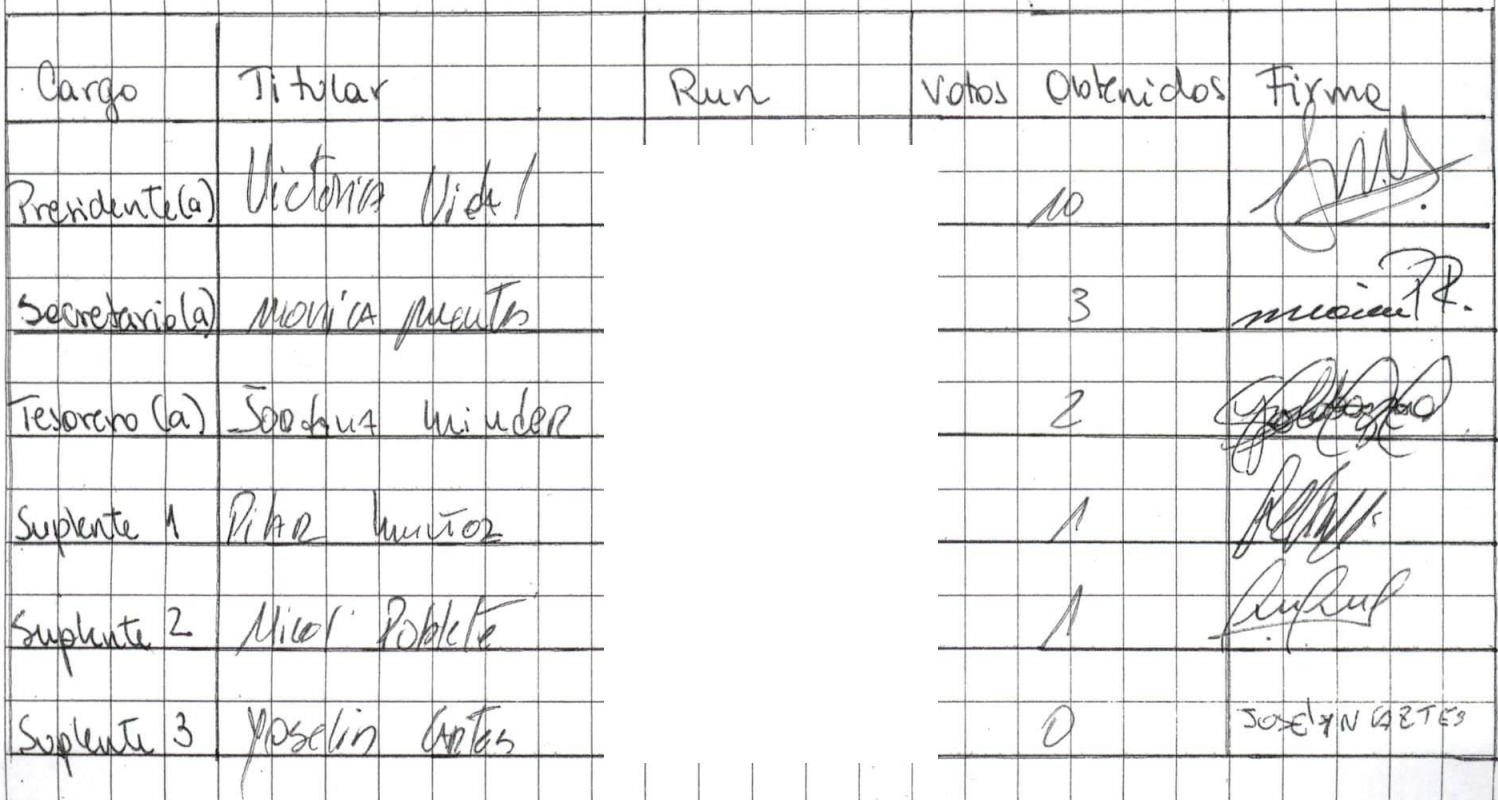 Cargo Titular Run Votos Obtenidos Firma
Presidente(a) Victoria Vidal 10
Secretario(a) Monica Puentes 3
Tesorero (a) 2
Suplente 1 Pilar Muñoz 1
Suplente 2 Poblete 1
Suplente 3 Yoselin Cartes 0 JOSELYN CARTES